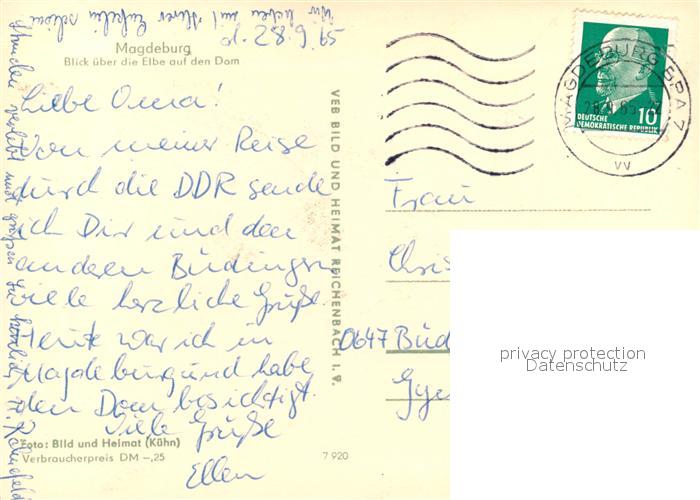 Wir haben mit Ihrer Enkelin schöne
Stunden verlebt und grüßen Sie herzlich
Magdeburg
Blick über die Elbe auf den Dom
Liebe Oma!
Von meiner Reise
durch die DDR sende
ich Dir und den
anderen Büdingern
viele herzliche Grüße
Heute war ich in
Magdeburg und habe
den Dom besichtigt.
Viele Grüße
Ellen
Foto: Bild und Heimat (Kühn)
Verbraucherpreis DM -,25
7 920
VEB BILD UND HEIMAT REICHENBACH I. V.
MAGDEBURG BPA 7
VV
10
DEUTSCHE
DEMOKRATISCHE REPUBLIK
Frau
0647 Büd
privacy protection
Datenschutz